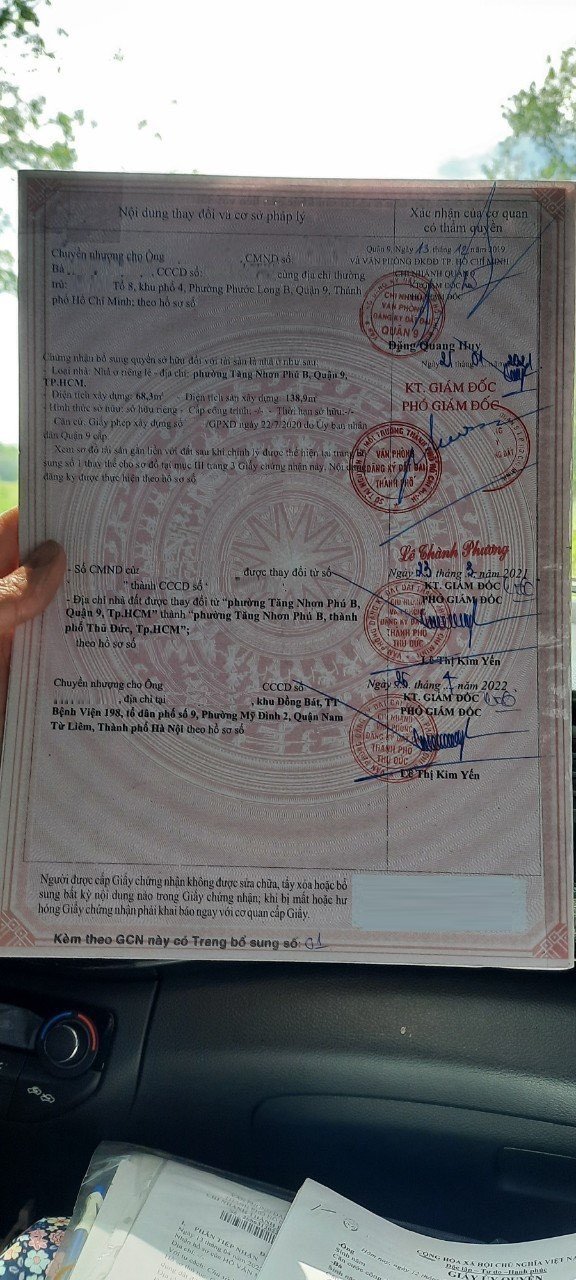 Nội dung thay đổi và cơ sở pháp lý
Xác nhận của cơ quan
có thẩm quyền
Chuyển nhượng cho Ông , CMND số:
Bà , CCCD số: cùng địa chỉ thường
trú: Tổ 8, khu phố 4, Phường Phước Long B, Quận 9, Thành
phố Hồ Chí Minh; theo hồ sơ số
Quận 9, Ngày 13 tháng 12 năm 2019
VĂN PHÒNG ĐKĐĐ TP. HỒ CHÍ MINH
CHI NHÁNH QUẬN 9
GIÁM ĐỐC
CHI NHÁNH
VĂN PHÒNG
ĐĂNG KÝ ĐẤT ĐAI
QUẬN 9
Đặng Quang Huy
Chứng nhận bổ sung quyền sở hữu đối với tài sản là nhà ở như sau:
- Loại nhà: Nhà ở riêng lẻ - địa chỉ: phường Tăng Nhơn Phú B, Quận 9,
TP.HCM.
- Diện tích xây dựng: 68,3m² - Diện tích sàn xây dựng: 138,9m²
- Hình thức sở hữu: sở hữu riêng - Cấp công trình: -/- - Thời hạn sở hữu:-/-
- Căn cứ: Giấy phép xây dựng số /GPXD ngày 22/7/2020 do Ủy ban nhân
dân Quận 9 cấp
Xem sơ đồ tài sản gắn liền với đất sau khi chỉnh lý được thể hiện tại trang bổ
sung số 1 thay thế cho sơ đồ tại mục III trang 3 Giấy chứng nhận này. Nội dung
đăng ký được thực hiện theo hồ sơ số
Ngày 21 01
KT. GIÁM ĐỐC
PHÓ GIÁM ĐỐC
VĂN PHÒNG
ĐĂNG KÝ ĐẤT ĐAI
THÀNH PHỐ
Lê Thành Phương
- Số CMND cũ: được thay đổi từ số
" thành CCCD số "
- Địa chỉ nhà đất được thay đổi từ “phường Tăng Nhơn Phú B,
Quận 9, Tp.HCM” thành “phường Tăng Nhơn Phú B, thành
phố Thủ Đức, Tp.HCM”;
theo hồ sơ số
Ngày 23 tháng năm 2021
KT. GIÁM ĐỐC
PHÓ GIÁM ĐỐC
THÀNH PHỐ
THỦ ĐỨC
Lê Thị Kim Yến
Chuyển nhượng cho Ông CCCD số
, địa chỉ tại , khu Đồng Bát, TT
Bệnh Viện 198, tổ dân phố số 9, Phường Mỹ Đình 2, Quận Nam
Từ Liêm, Thành phố Hà Nội theo hồ sơ số
Ngày tháng năm 2022
KT. GIÁM ĐỐC
PHÓ GIÁM ĐỐC
CHI NHÁNH
THÀNH PHỐ
THỦ ĐỨC
Lê Thị Kim Yến
Người được cấp Giấy chứng nhận không được sửa chữa, tẩy xóa hoặc bổ
sung bất kỳ nội dung nào trong Giấy chứng nhận; khi bị mất hoặc hư
hỏng Giấy chứng nhận phải khai báo ngay với cơ quan cấp Giấy.
Kèm theo GCN này có Trang bổ sung số: 01
CỘNG HÒA XÃ HỘI CHỦ NGHĨA VIỆT
Độc lập - Tự do - Hạnh phúc
GIẤY ỦY QUYỀN